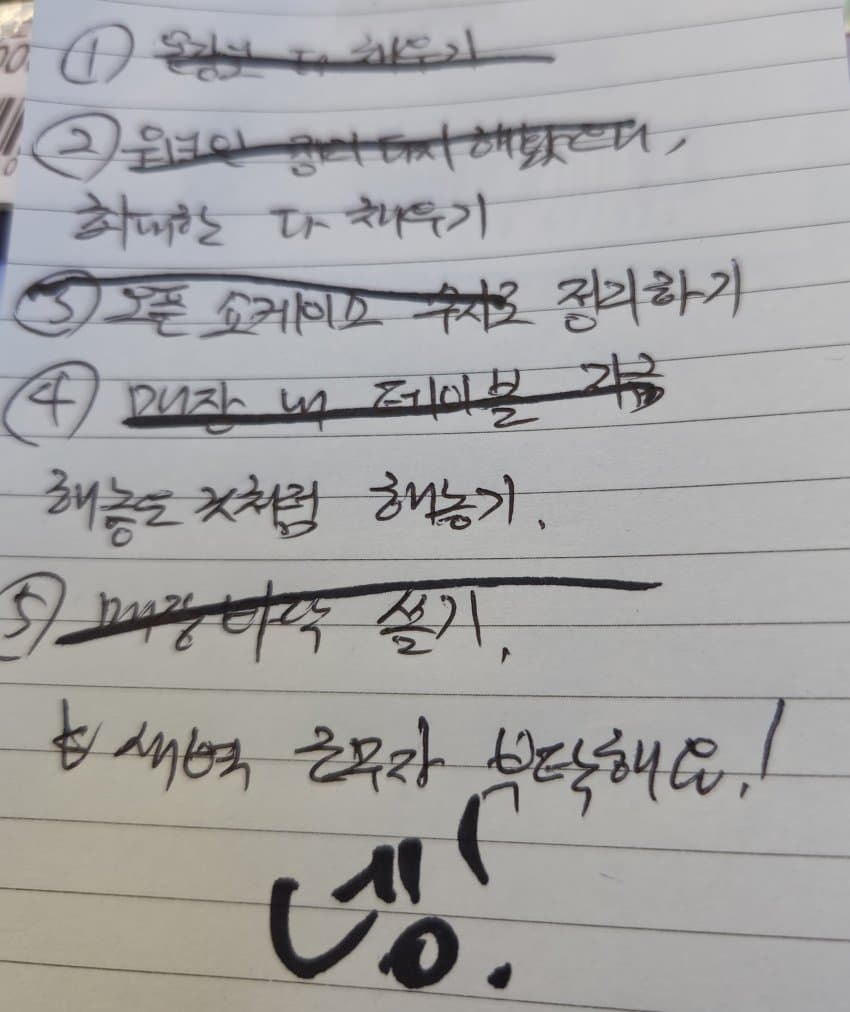 ① 다 채우기
② 워크인
최대한 다 채우기
③ 오픈 쇼케이스 수시로 정리하기
④ 매장 내 테이블 지금
해놓은 것처럼 해놓기.
⑤ 매장 바닥 쓸기.
새벽 근무자 부탁해요!
넹.